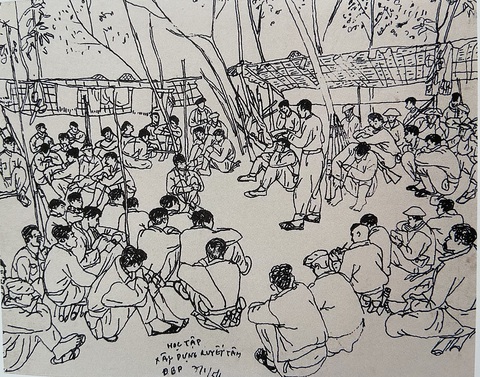 HỌC TẬP
XÂY DỰNG QUYẾT TÂM
ĐBP